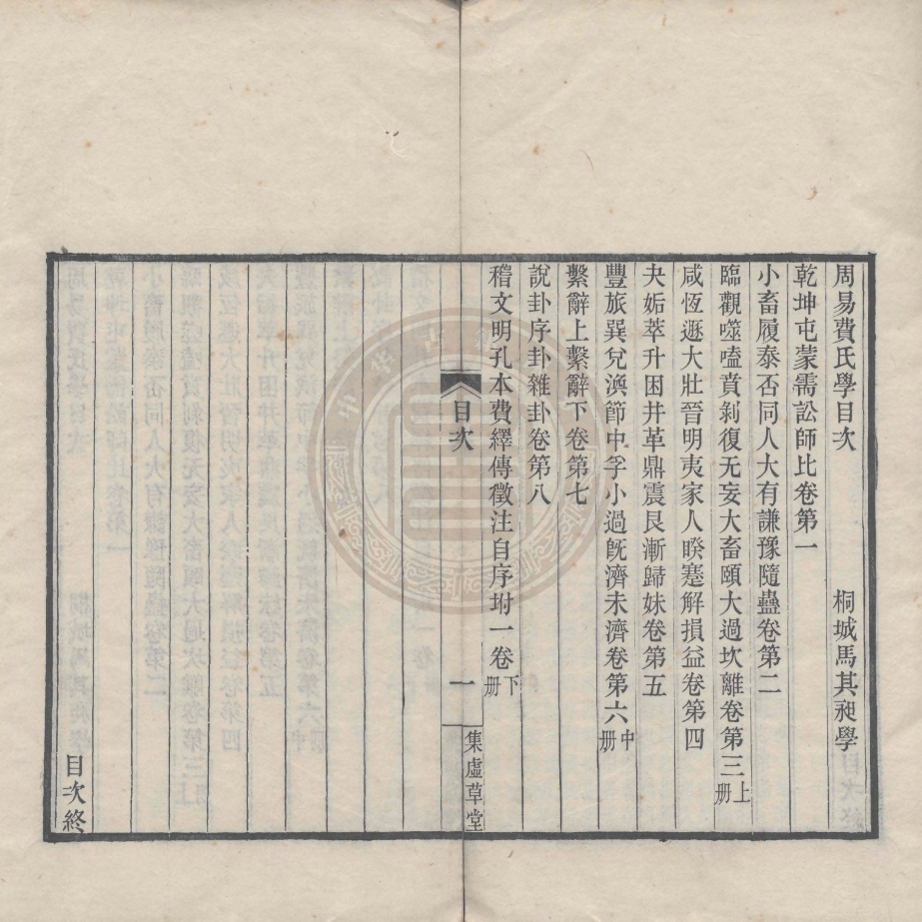 周易費氏學目次　桐城馬其昶學
乾坤屯蒙需訟師比卷第一
小畜履泰否同人大有謙豫隨蠱卷第二
臨觀噬嗑賁剝復无妄大畜頤大過坎離卷第三上册
咸恆遯大壯晉明夷家人睽蹇解損益卷第四
夬姤萃升困井革鼎震艮漸歸妹卷第五
豐旅巽兌渙節中孚小過旣濟未濟卷第六中册
繫辭上繫辭下卷第七
說卦序卦雜卦卷第八
稽文明孔本費繹傳徵注自序坿一卷下册
目次　一　集虛草堂
目次終